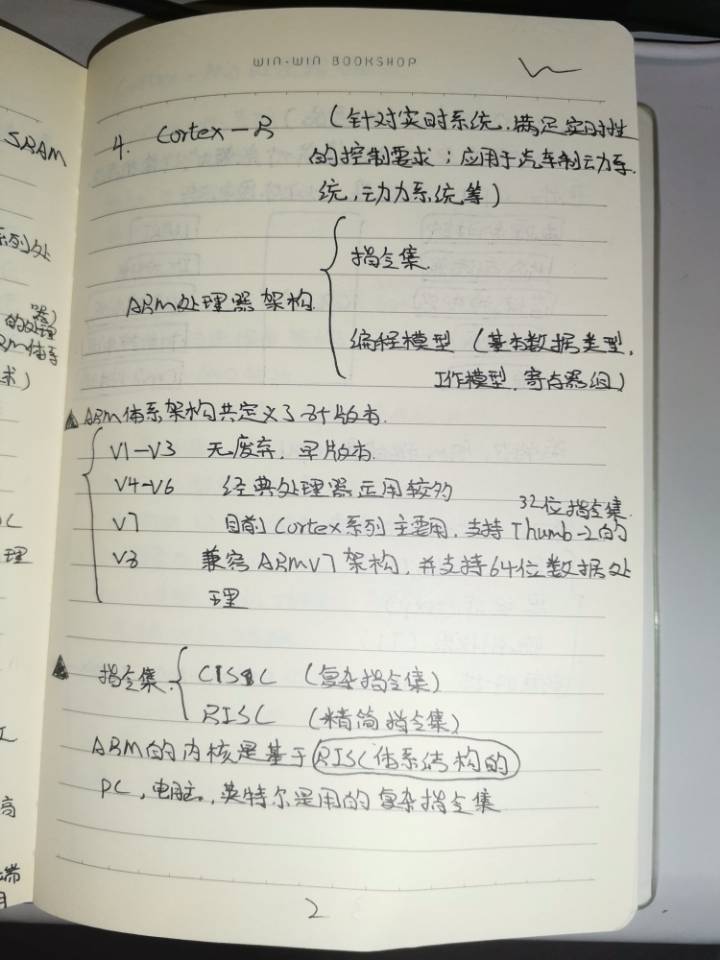 WIN·WIN BOOKSHOP
4. Cortex-R (针对实时系统,满足实时性
的控制要求;应用于汽车制动系
统,动力系统等)
ARM处理器架构
指令集
编程模型(基本数据类型,
工作模型,寄存器组)
▲ARM体系架构共定义了8个版本
V1-V3 无废弃,早版本
V4-V6 经典处理器应用较多
32位指令集
V7 目前Cortex系列主要用,支持Thumb-2的
V8 兼容ARMV7架构,并支持64位数据处
理
▲指令集
CISC (复杂指令集)
RISC (精简指令集)
ARM的内核是基于RISC体系结构的
PC,电脑,英特尔是用的复杂指令集
2
SRAM
系列处
器)
的处理
RM体系
术)
理
高
端